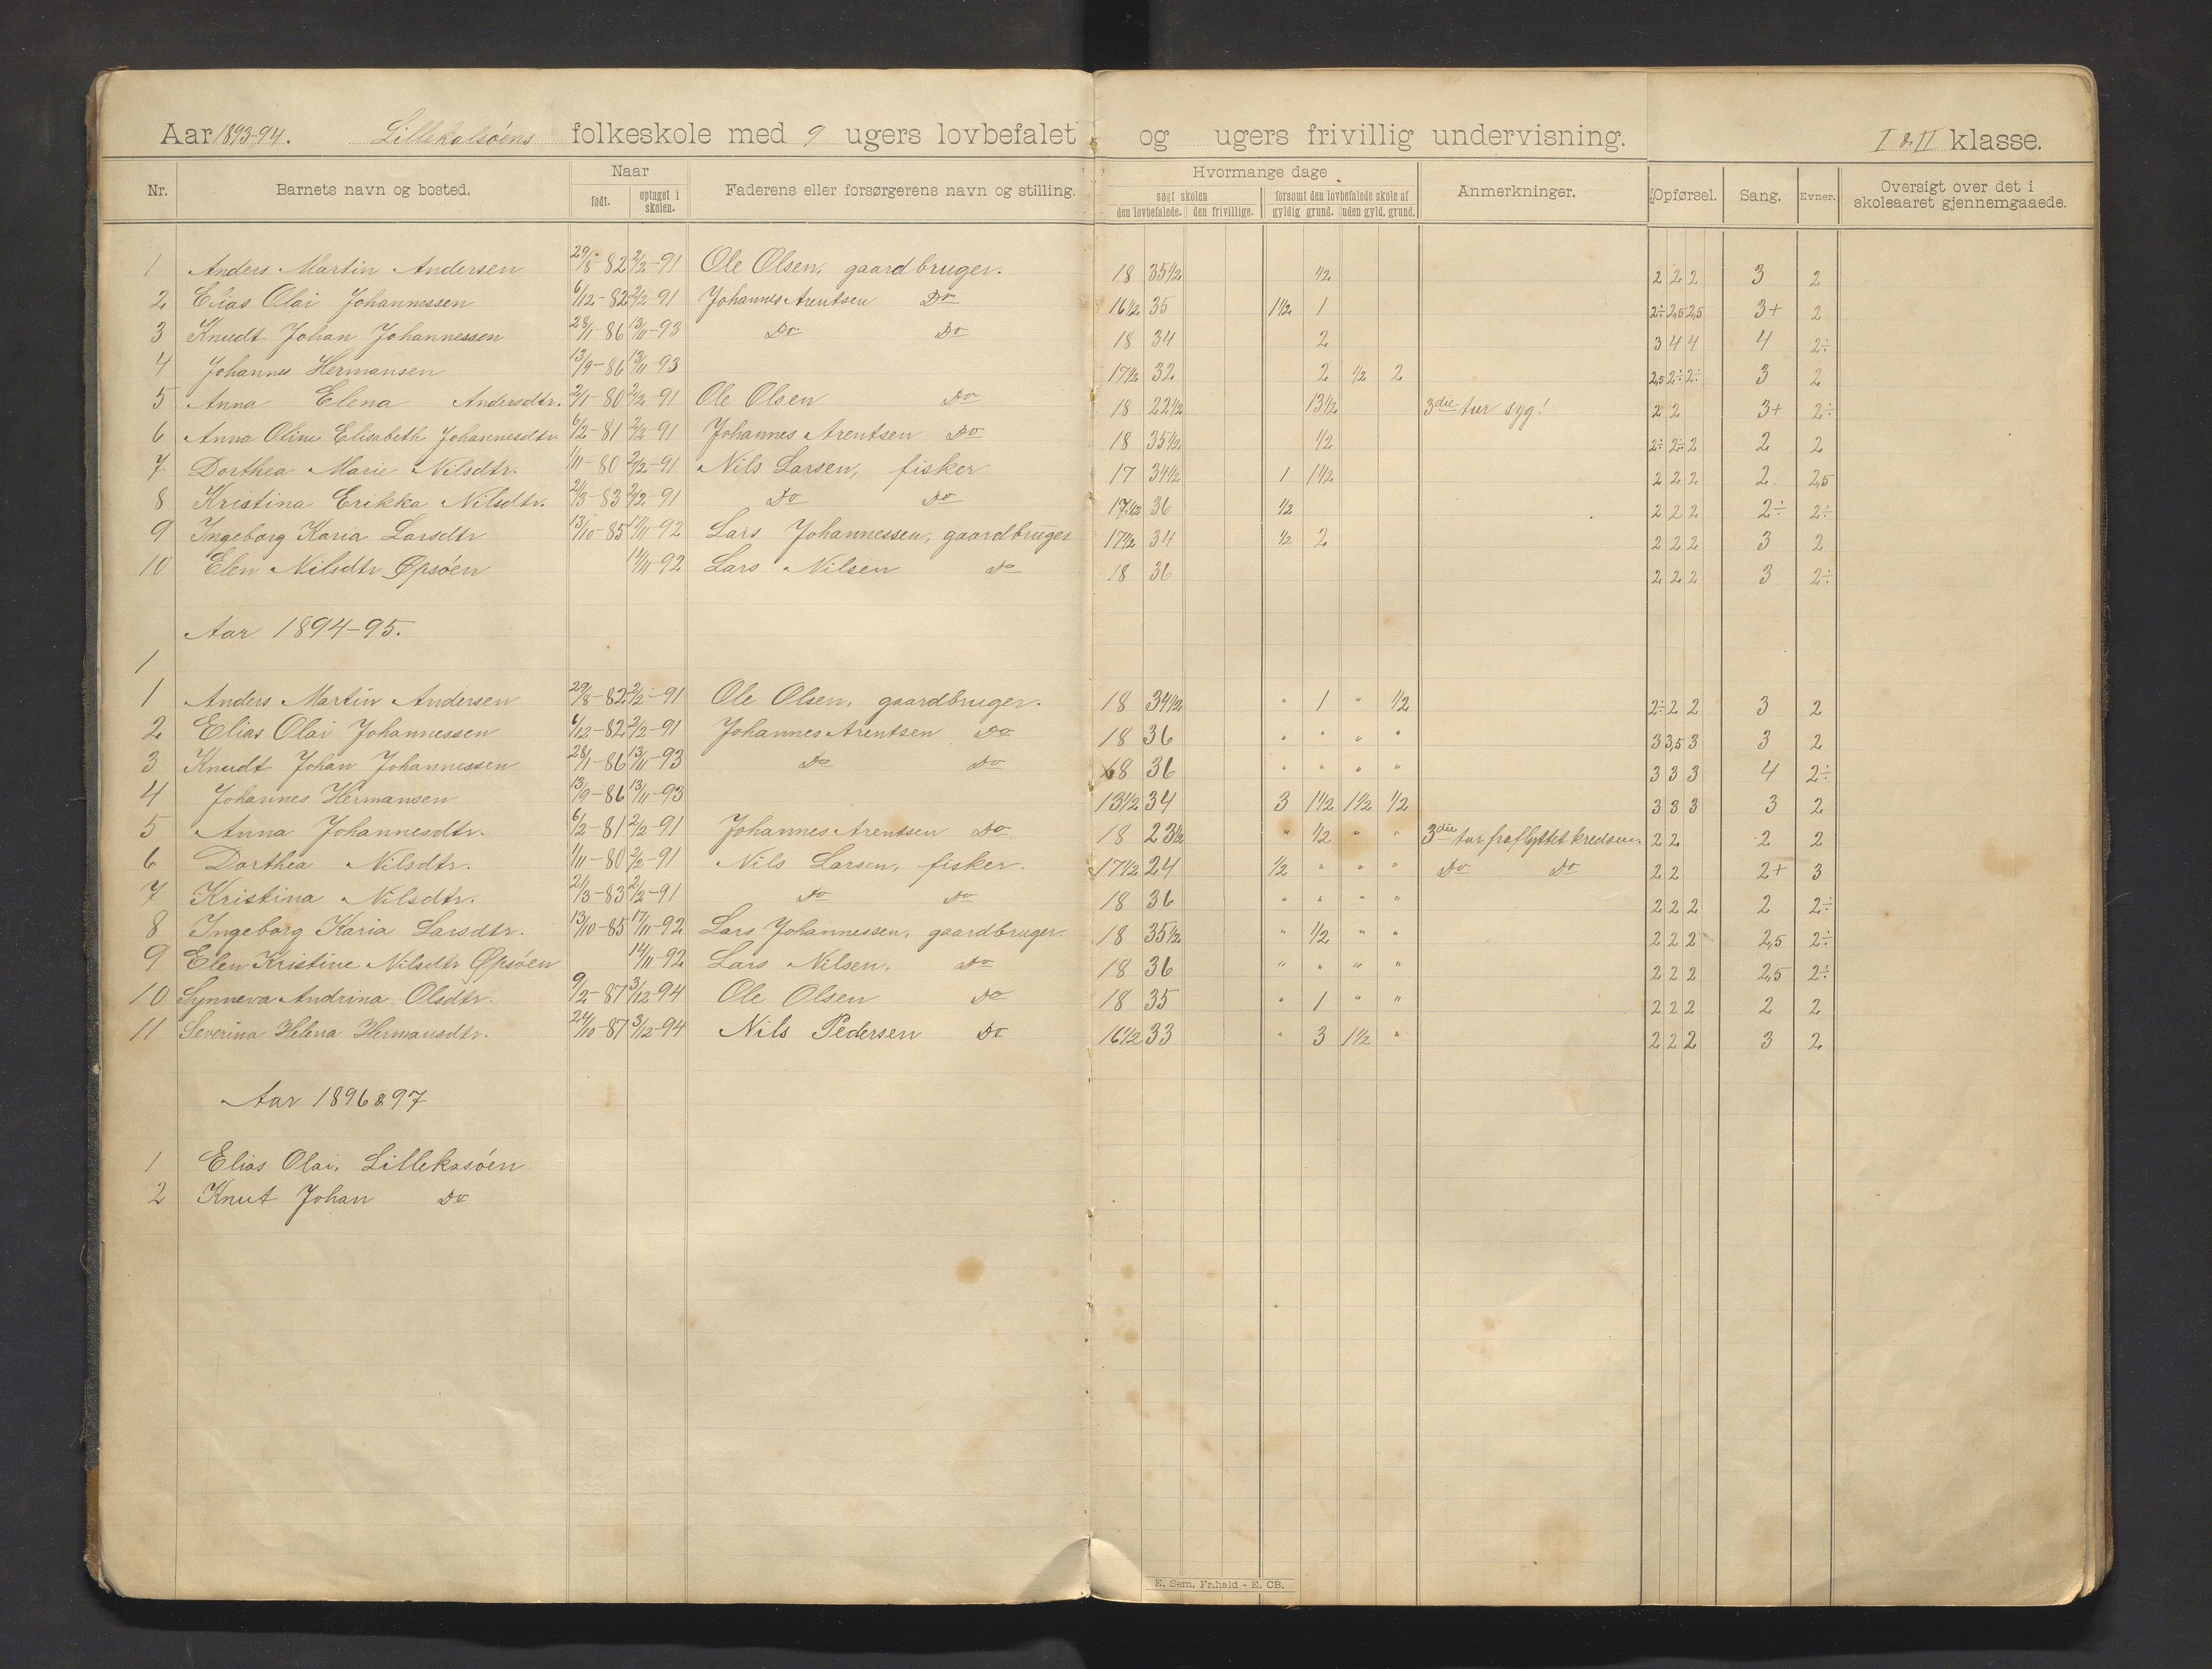 Aar 1893-94. Lillekalsöens folkeskole med 9 ugers lovbefalet og ugers frivillig undervisning. I & II klasse.
Nr. Barnets navn og bosted. Naar født. optaget i skolen. Faderens eller forsørgerens navn og stilling. Hvormange dage søgt skolen den lovbefalede. den frivillige. forsømt den lovbefalede skole af gyldig grund. uden gyld. grund. Anmerkninger. Opførsel. Sang. Evner. Oversigt over det i skoleaaret gjennemgaaede.
1 Anders Martin Andersen 29/8-82 2/2-91 Ole Olsen, gaardbruger. 18 35 1/2 1/2 2 2 2 3 2
2 Elias Olai Johannessen 6/12-82 2/2-91 Johannes Arentsen Do 16 1/2 35 1 1/2 1 2÷ 2,5 2,5 3+ 2
3 Knudt Johan Johannessen 28/1-86 13/11-93 Do Do 18 34 2 3 4 4 4 2÷
4 Johannes Hermansen 13/9-86 13/11-93 17 1/2 32 2 1/2 2 2,5 2÷ 2÷ 3 2
5 Anna Elena Andersdtr. 2/1-80 2/2-91 Ole Olsen Do 18 22 1/2 13 1/2 3die tur syg! 2 2 3+ 2÷
6 Anna Oline Elisabeth Johannesdtr 6/2-81 2/2-91 Johannes Arentsen Do 18 35 1/2 1/2 2÷ 2÷ 2 2 2
7 Dorthea Marie Nilsdtr. 1/11-80 2/2-91 Nils Larsen, fisker 17 34 1/2 1 1 1/2 2 2 2 2. 2,5
8 Kristina Erikka Nilsdtr. 21/3-83 2/2-91 Do Do 17 1/2 36 1/2 2 2 2 2÷ 2÷
9 Ingeborg Karia Larsdtr 13/10-85 17/11-92 Lars Johannessen, gaardbruger 17 1/2 34 1/2 2 2 2 2 3 2
10 Elen Nilsdtr Øpsöen 14/11-92 Lars Nilsen Do 18 36 2 2 2 3 2÷
Aar 1894-95.
1
1 Anders Martin Andersen 29/8-82 2/2-91 Ole Olsen, gaardbruger. 18 34 1/2 " 1 " 1/2 2÷ 2 2 3 2
2 Elias Olai Johannessen 6/12-82 2/2-91 Johannes Arentsen Do 18 36 " " " " 3 3,5 3 3 2
3 Knudt Johan Johannessen 28/1-86 13/11-93 Do Do 18 36 " " " " 3 3 3 4 2÷
4 Johannes Hermansen 13/9-86 13/11-93 13 1/2 34 3 1 1/2 1 1/2 1/2 3 3 3 3 2
5 Anna Johannesdtr. 6/2-81 2/2-91 Johannes Arentsen Do 18 23 1/2 " 1/2 " " 3die tur fraflyttet kredsen. 2 2 2 2
6 Dorthea Nilsdtr. 1/11-80 2/2-91 Nils Larsen, fisker. 17 1/2 24 1/2 " " " Do Do 2 2 2+ 3
7 Kristina Nilsdtr. 21/3-83 2/2-91 Do Do 18 36 " " " " 2 2 2 2 2÷
8 Ingeborg Karia Larsdtr. 13/10-85 17/11-92 Lars Johannessen, gaardbruger. 18 35 1/2 " 1/2 " " 2 2 2 2,5 2÷
9 Elen Kristine Nilsdtr Øpsöen 14/11-92 Lars Nilsen. Do 18 36 " " " " 2 2 2 2,5 2÷
10 Synneva Andrina Olsdtr. 9/2-87 3/12-94 Ole Olsen Do 18 35 " 1 " " 2 2 2 2 2
11 Severina Helena Hermansdtr. 24/10-87 3/12-94 Nils Pedersen Do 16 1/2 33 " 3 1 1/2 " 2 2 2 3 2
Aar 1896 & 97
1 Elias Olai, Lillekasöen
2 Knut Johan Do
E. Sem. Fr.hald - E. CB.